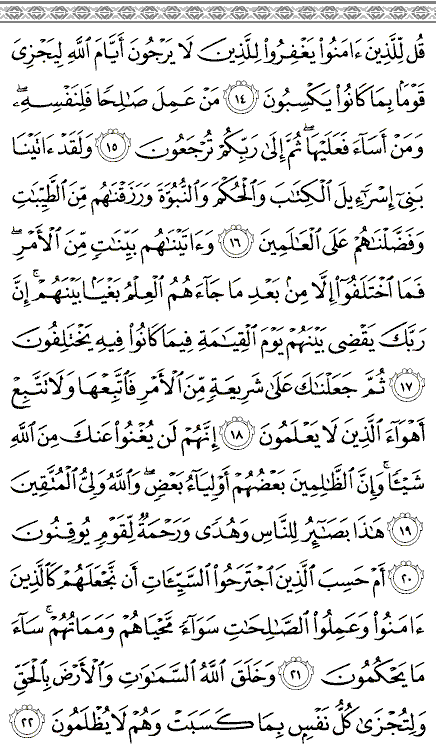 قُل لِّلَّذِينَ ءَامَنُوا۟ يَغْفِرُوا۟ لِلَّذِينَ لَا يَرْجُونَ أَيَّامَ ٱللَّهِ لِيَجْزِىَ
قَوْمًۢا بِمَا كَانُوا۟ يَكْسِبُونَ ١٤ مَنْ عَمِلَ صَـٰلِحًا فَلِنَفْسِهِۦ ۖ
وَمَنْ أَسَآءَ فَعَلَيْهَا ۖ ثُمَّ إِلَىٰ رَبِّكُمْ تُرْجَعُونَ ١٥ وَلَقَدْ ءَاتَيْنَا
بَنِىٓ إِسْرَٰٓءِيلَ ٱلْكِتَـٰبَ وَٱلْحُكْمَ وَٱلنُّبُوَّةَ وَرَزَقْنَـٰهُم مِّنَ ٱلطَّيِّبَـٰتِ
وَفَضَّلْنَـٰهُمْ عَلَى ٱلْعَـٰلَمِينَ ١٦ وَءَاتَيْنَـٰهُم بَيِّنَـٰتٍ مِّنَ ٱلْأَمْرِ ۖ
فَمَا ٱخْتَلَفُوٓا۟ إِلَّا مِنۢ بَعْدِ مَا جَآءَهُمُ ٱلْعِلْمُ بَغْيًۢا بَيْنَهُمْ ۚ إِنَّ
رَبَّكَ يَقْضِى بَيْنَهُمْ يَوْمَ ٱلْقِيَـٰمَةِ فِيمَا كَانُوا۟ فِيهِ يَخْتَلِفُونَ
١٧ ثُمَّ جَعَلْنَـٰكَ عَلَىٰ شَرِيعَةٍ مِّنَ ٱلْأَمْرِ فَٱتَّبِعْهَا وَلَا تَتَّبِعْ
أَهْوَآءَ ٱلَّذِينَ لَا يَعْلَمُونَ ١٨ إِنَّهُمْ لَن يُغْنُوا۟ عَنكَ مِنَ ٱللَّهِ
شَيْـًٔا ۚ وَإِنَّ ٱلظَّـٰلِمِينَ بَعْضُهُمْ أَوْلِيَآءُ بَعْضٍ ۖ وَٱللَّهُ وَلِىُّ ٱلْمُتَّقِينَ
١٩ هَـٰذَا بَصَـٰٓئِرُ لِلنَّاسِ وَهُدًى وَرَحْمَةٌ لِّقَوْمٍ يُوقِنُونَ
٢٠ أَمْ حَسِبَ ٱلَّذِينَ ٱجْتَرَحُوا۟ ٱلسَّيِّـَٔاتِ أَن نَّجْعَلَهُمْ كَٱلَّذِينَ
ءَامَنُوا۟ وَعَمِلُوا۟ ٱلصَّـٰلِحَـٰتِ سَوَآءً مَّحْيَاهُمْ وَمَمَاتُهُمْ ۚ سَآءَ
مَا يَحْكُمُونَ ٢١ وَخَلَقَ ٱللَّهُ ٱلسَّمَـٰوَٰتِ وَٱلْأَرْضَ بِٱلْحَقِّ
وَلِتُجْزَىٰ كُلُّ نَفْسٍۭ بِمَا كَسَبَتْ وَهُمْ لَا يُظْلَمُونَ ٢٢